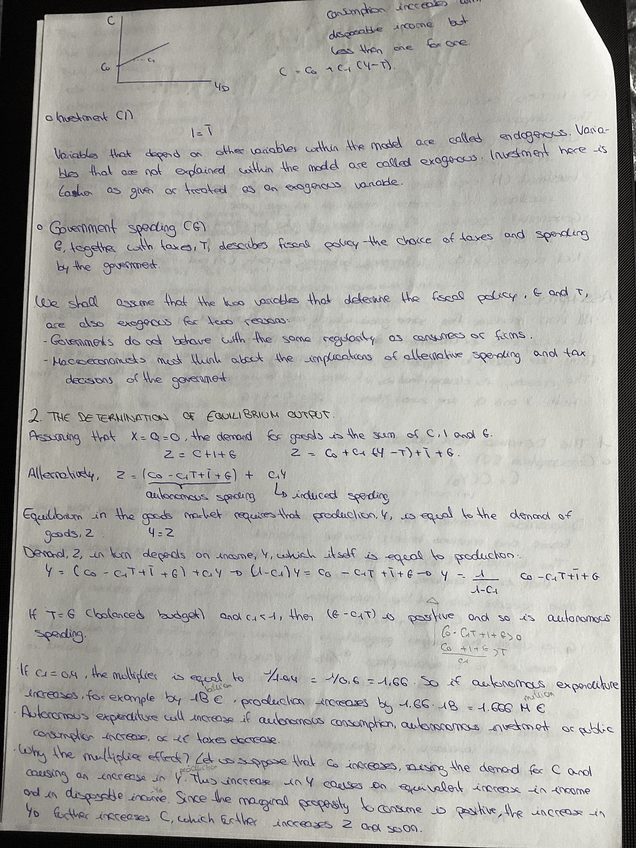 C
consumption increases with
disposable income but
less than one for one
C₀
C₁
C = C₀ + C₁ (Y-T).
YD
Investment (I)
I = Ī
Variables that depend on other variables within the model are called endogenous. Varia-
bles that are not explained within the model are called exogenous. Investment here is
as given or treated as an exogenous variable.
Government spending (G)
G, together with taxes, T, describes fiscal policy - the choice of taxes and spending
by the government.
We shall assume that the two variables that determine the fiscal policy, G and T,
are also exogenous for two reasons:
- Governments do not behave with the same regularity as consumers or firms.
- Macroeconomists must think about the implications of alternative spending and tax
decisions of the government.
2. THE DETERMINATION OF EQUILIBRIUM OUTPUT.
Assuming that X=Q=0, the demand for goods is the sum of C, I and G.
Z = C+I+G Z = C₀ + C₁ (Y-T) + Ī + G.
Alternatively, Z = (C₀ - C₁T + Ī + G) + C₁Y
autonomous spending ↳ induced spending
Equilibrium in the goods market requires that production, Y, is equal to the demand of
goods, Z Y=Z
Demand, Z, in turn depends on income, Y, which itself is equal to production:
Y = (C₀ - C₁T + Ī + G) + C₁Y → (1-C₁)Y = C₀ - C₁T + Ī + G → Y = 1/1-C₁ C₀-C₁T+Ī+G
If T=G (balanced budget) and C₁<1, then (G-C₁T) is positive and so is autonomous
spending.
C₀-C₁T+I+G>0
C₀+I+G/C₁ >T
If C₁ = 0,4, the multiplier is equal to 1/1-0.4 = 1/0.6 = 1,66. So if autonomous expenditure
billion million
increases, for example by 1B €, production increases by 1.66 · 1B = 1.666 M €
· Autonomous expenditure will increase if autonomous consumption, autonomous investment or public
consumption increase, or if taxes decrease.
· Why the multiplier effect? Let us suppose that C₀ increases, raising the demand for C and
causing an increase in Y. This increase in Y causes an equivalent increase in income
and in disposable income. Since the marginal propensity to consume is positive, the increase in
YD further increases C, which further increases Z and so on.